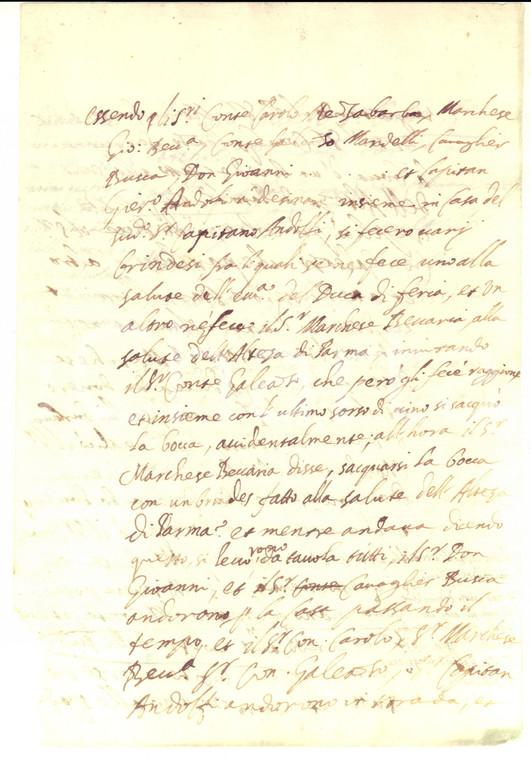 Essendo gli Sri. Conte Carolo Marchese
Gio: Becca. Conte Mandelli Cavaglier
Busca Don Giovanni et Capitan
insieme in Casa del
Sudo. Sr. Capitano Andolfi, si fecero varij
brindesi fra li quali se ne fece uno alla
salute dell' del Duca di feria, et un
altro ne fece il Sr. Marchese Beccaria alla
salute dell' Alteza di Parma invitando
il Sr. Conte Galeaso, che però gli fece raggione
et insieme con l' ultimo sorso di vino si sacquò
la bocca, accidentalmente; all' hora il Sr.
Marchese Beccaria disse, sacquarsi la bocca
con un brindes fatto alla salute dell' Alteza
di Parma. et mentre andava dicendo
questo, si levorono da tavola tutti, il Sr. Don
Giovanni, et il Sr. Conte Cavaglier Busca
andorono p. la passando il
tempo, et il Sr. Con. Carolo, Sr. Marchese
Becca. Sr. Con. Galeaso, Capitan
Andolfi andorono in strada, et